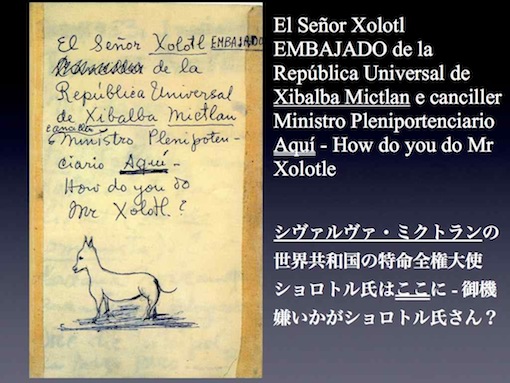 El Señor Xolotl EMBAJADO
de la
República Universal
de Xibalba Mictlan
e canciller
Ministro Plenipoten-
ciario Aquí -
How do you do
Mr Xolotl?
El Señor Xolotl
EMBAJADO de la
República Universal de
Xibalba Mictlan e canciller
Ministro Pleniportenciario
Aquí - How do you do Mr
Xolotle
シヴァルヴァ・ミクトランの
世界共和国の特命全権大使
ショロトル氏はここに - 御機
嫌いかがショロトル氏さん？